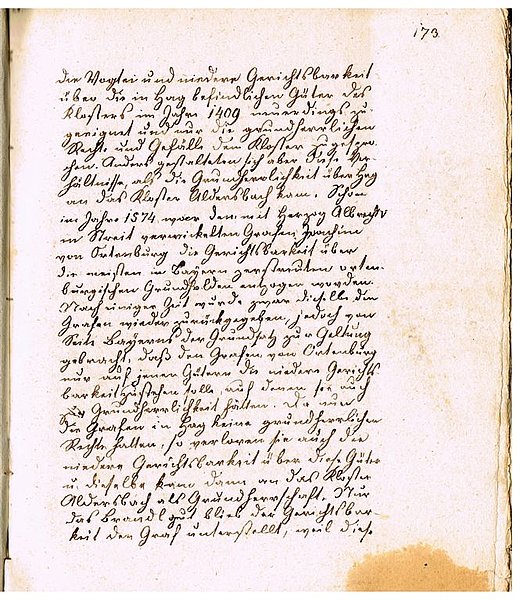 173
die Vogtei und niedere Gerichtsbarkeit
über die in Hag befindlichen Güter des
Klosters im Jahre 1409 neuerdings zu-
geeignet und nur die grundherrlichen
Rechte und Gefälle dem Kloster zugespro-
chen. Anders gestalteten sich aber diese Ver-
hältnisse, als die Grundherrlichkeit über Hag
an das Kloster Aldersbach kam. Schon
im Jahre 1574 war dem mit Herzog Albrecht V
in Streit verwickelten Grafen Joachim
von Ortenburg die Gerichtsbarkeit über
die meisten in Bayern zerstreuten orten-
burgischen Grundholden entzogen worden.
Nach einiger Zeit wurde zwar dieselbe den
Grafen wieder zurückgegeben, jedoch von
Seite Bayerns der Grundsatz zu Geltung
gebracht, daß den Grafen von Ortenburg
nur auf jenen Gütern die niedere Gerichts-
barkeit zustehen solle, auf denen sie auch
die Grundherrlichkeit hätten. Da nun
die Grafen in Hag keine grundherrlichen
Rechte hatten, so verloren sie auch die
niedere Gerichtsbarkeit über diese Güter
u. dieselbe kam dann an das Kloster
Aldersbach als Grundherrschaft. Nur
das Brandlgut blieb der Gerichtsbar-
keit der Graf unterstellt, weil diese